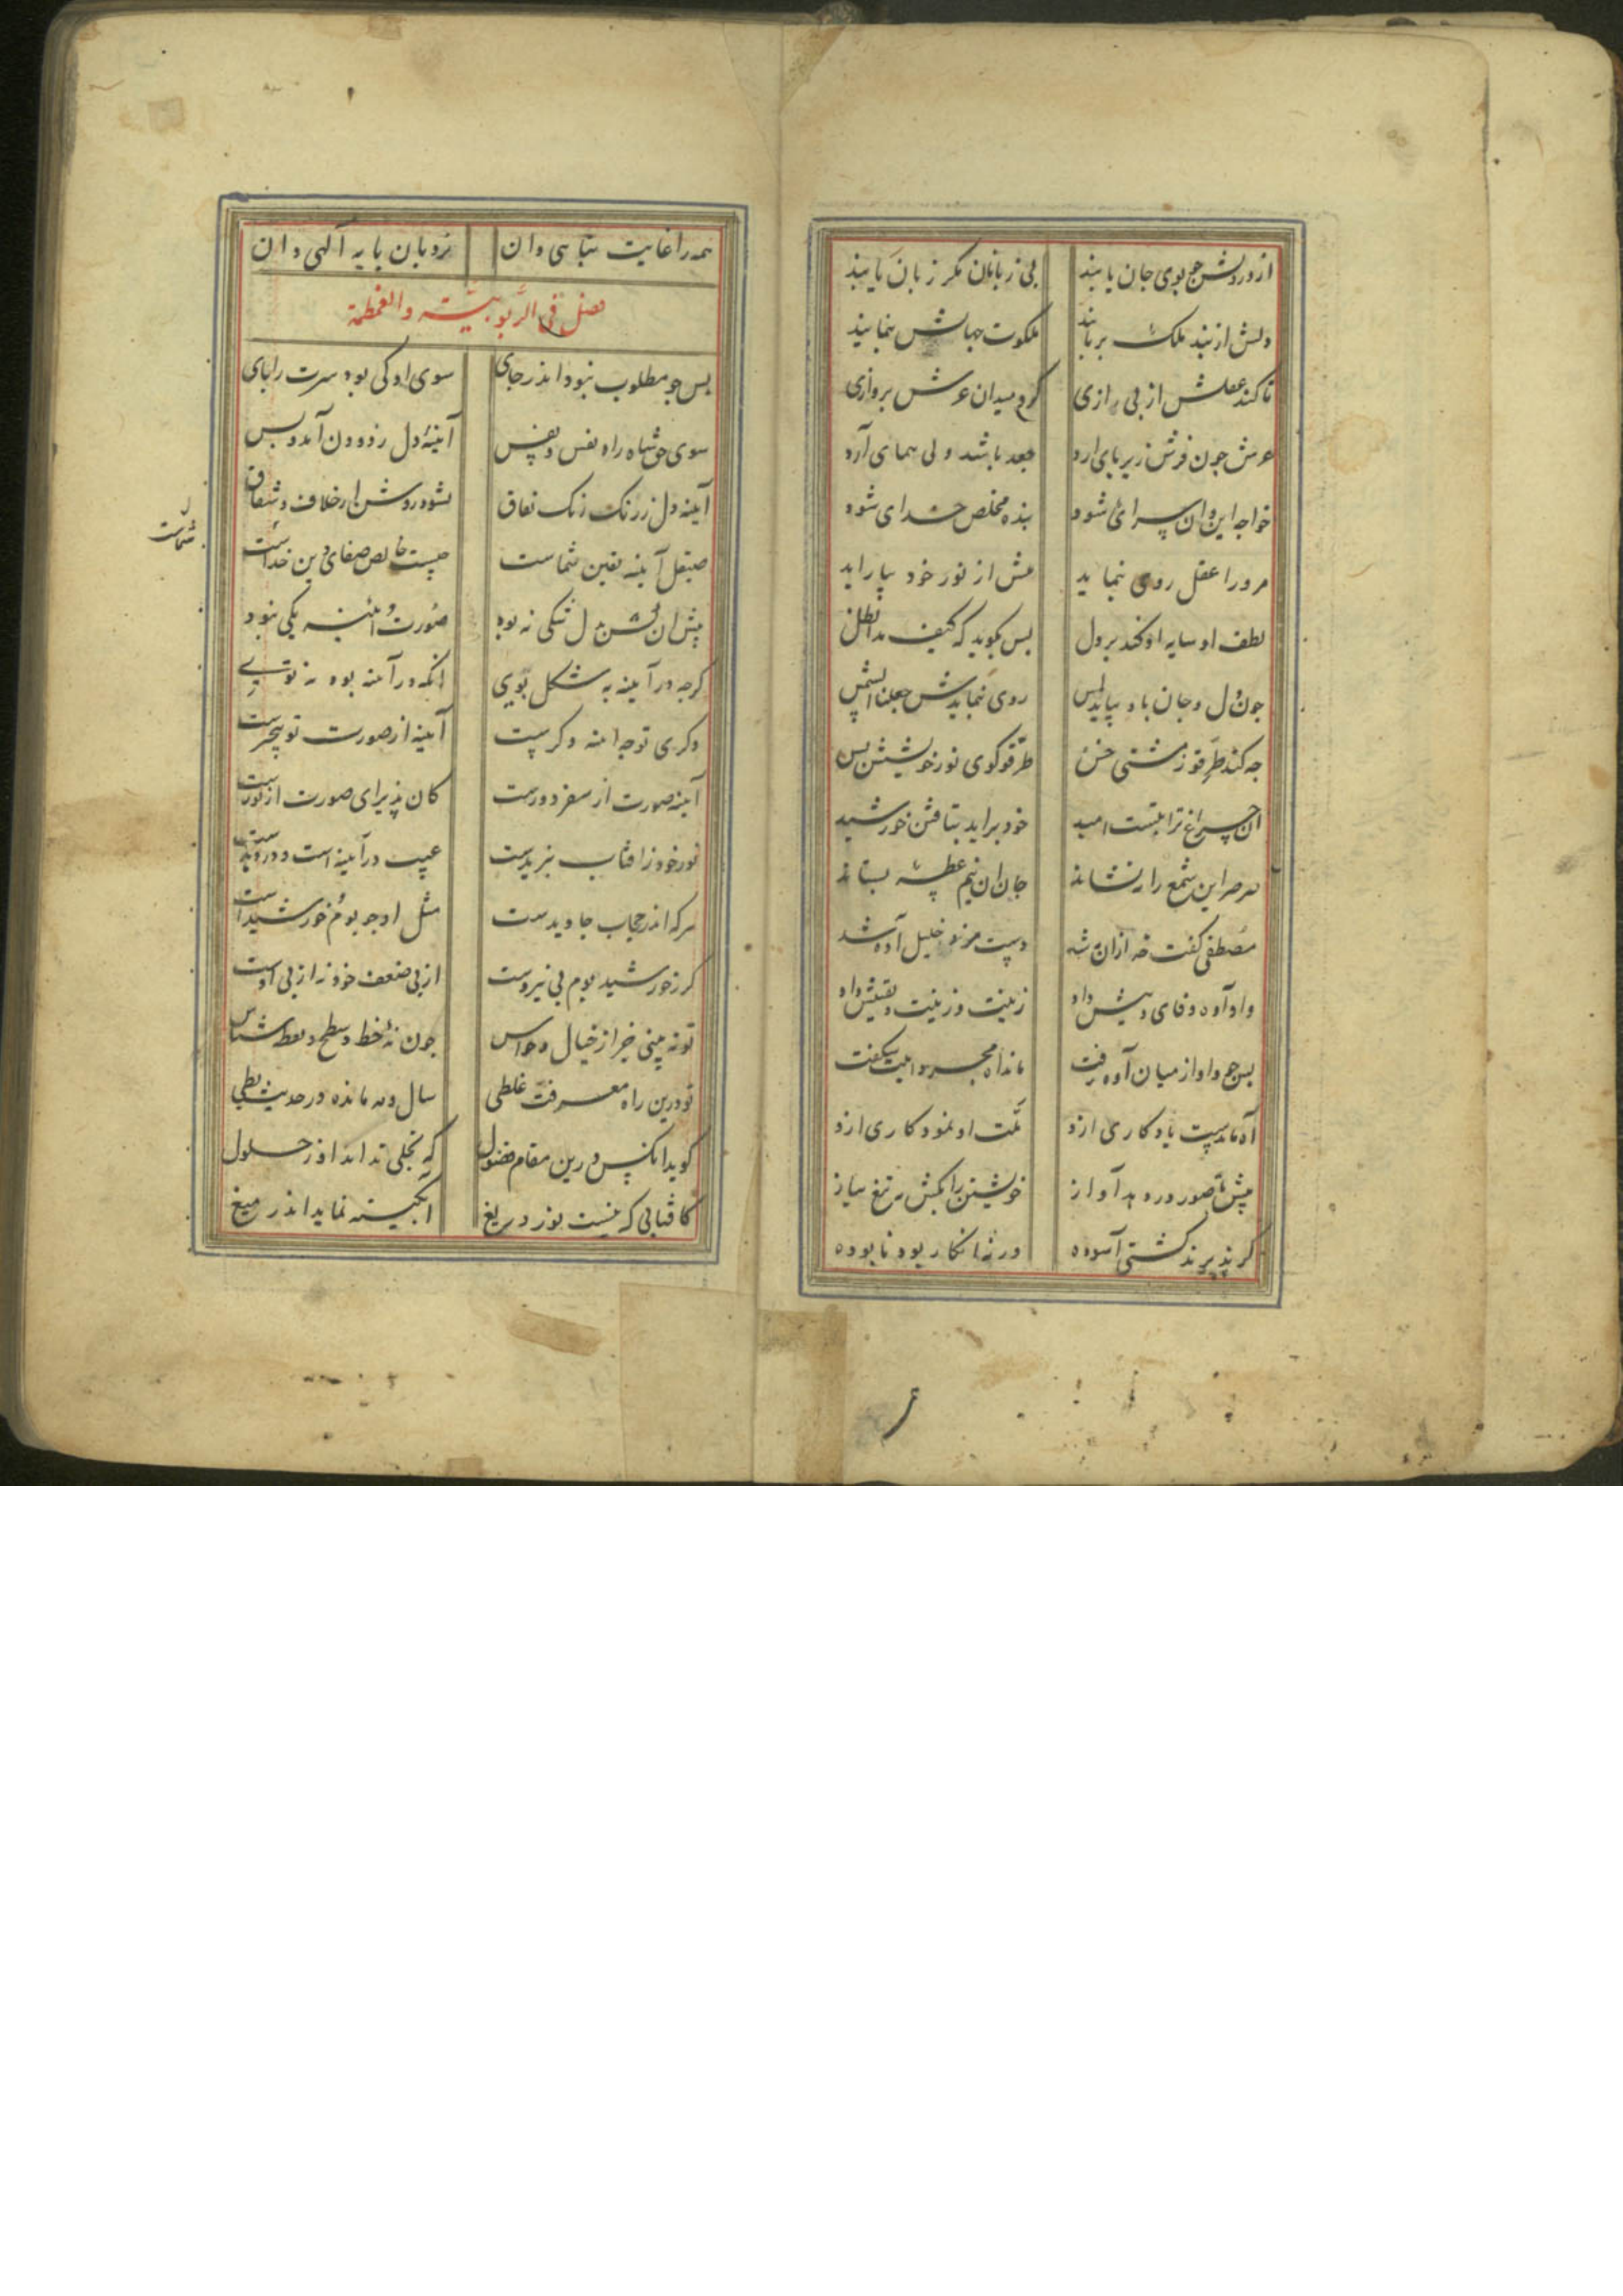 از درونش چو بوی جان یابند بی زبانان مکر زبان یابند
دلش از بند ملک برهانند ملکوت جهانش بنمایند
تا کند عقلش از پی رازی کرد میدان عرش پروازی
عرش جون فرش زیر پای آرد جغد باشد ولی همای آرد
خواجه این و آن سرای شود بنده مخلص خدای شود
مرورا عقل روی بنماید عیش از نور خود بیاراید
لطف او سایه افکند بر دل بس بکوید که کیف مد الظل
جون دل و جان باو بیاید لمس روی بنمایدش جعلنا الشمس
جه کند طرقوا ز مشتی خس طرقوکوی نور خویشتن بس
آن چراغ ترا بتست امید خود براید بتافتن خورشید
صرصر این شمع را بنشاند جان آن نیم عطسه بستاند
مصطفی کفت خه ازان ره شد دست مزد خلیل آوه شد
واو آوه وفای دینش داد زینت و زینت و یقینش داد
بس جو واو از میان آوه رفت ماند آه مجرد اینت شکفت
آه ماندست یادکاری ازو ملت او نمود کاری ازو
بیش تا صور در دهد آواز خویشتن را بکش به تیغ نیاز
کر بذیرند کشتی آسوده ورنه انکار بوده نابوده
همه را غایت تناهی دان نردبان پایه آلهی دان
فصل فی الربوبیة والعظمة
بس جو مطلوب نبود اندر جای سوی او کی بود سرت را پای
سوی حق شاه راه نفس و نفس آینهٔ دل زدودن آمد و بس
آینه دل ز زنک نفاق نشود روشن از خلاف و شقاق
صیقل آینه یقین شماست جیست خالص صفای دین خداست
شماست
بیش آن کش بدل شکی نه بود صورت و آینه یکی نبود
کرجه در آینه به شکل تویی آنکه در آینه بود نه تویی
دکری تو جو آینه دکرست آینه از صورت تو بیخبرست
آینه صورت از سفر دورست کان پذیرای صورت از نورست
نور خود ز افتاب نبریدست عیب در آینه است و در دیدست
هرکه اندر حجاب جاویدست مثل او جو بوم خورشیدست
کر ز خورشید بوم بی نیروست از پی ضعف خود نه از پی اوست
تو نه بینی جز از خیال و حواس جون نهٔ خط و سطح و نقطه شناس
تو درین راه معرفت غلطی سال و مه مانده در حدیث بطی
کوید آنکس درین مقام فضول که تجلی نداند او ز حلول
کافتابی که نیست نور دریغ آبکینه نماید اندر میغ